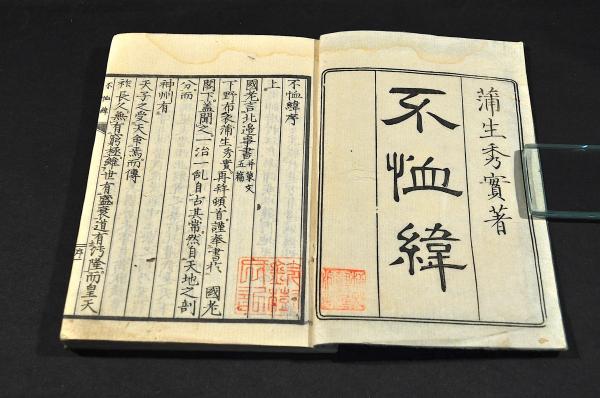 蒲生秀實著
不恤緯
不恤緯序
上
國老言北邊事書
并策文
五篇
下野布衣蒲生秀實再拜頓首謹奉書於 國老
閣下蓋聞之一治一亂自古其常然自天地之剖
分而
神州有
天子之受天命焉而傳
祚長久無有窮極維世有盛衰道有汚隆而皇天
不恤緯
序一